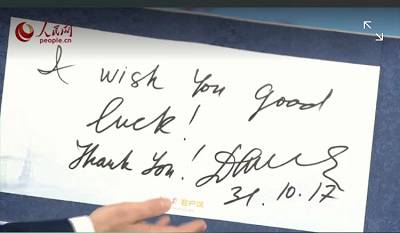 人民网
people.cn
I wish you good
luck!
Thank You!
31.10.17
客户端